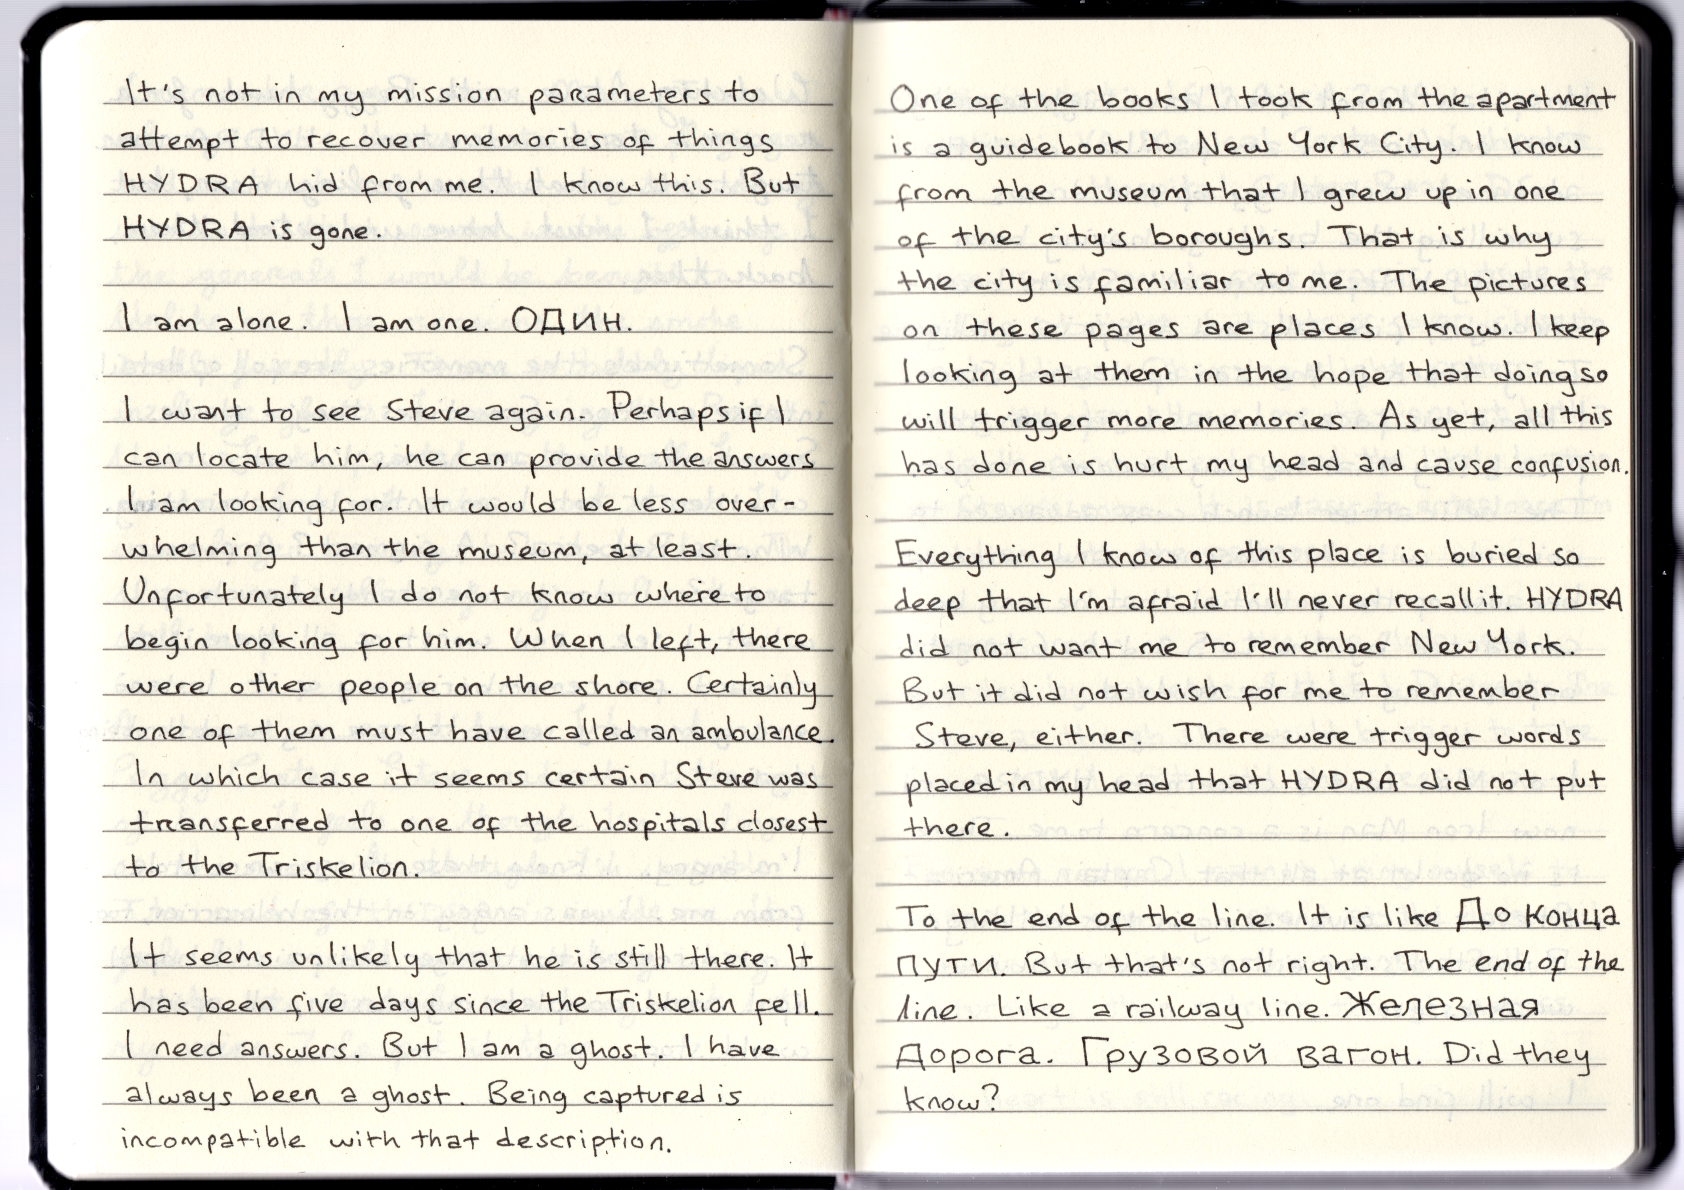 It's not in my mission parameters to
attempt to recover memories of things
HYDRA hid from me. I know this. But
HYDRA is gone.
I am alone. I am one. ОДИН.
I want to see Steve again. Perhaps if I
can locate him, he can provide the answers
I am looking for. It would be less over-
whelming than the museum, at least.
Unfortunately I do not know where to
begin looking for him. When I left, there
were other people on the shore. Certainly
one of them must have called an ambulance.
In which case it seems certain Steve was
transferred to one of the hospitals closest
to the Triskelion.
It seems unlikely that he is still there. It
has been five days since the Triskelion fell.
I need answers. But I am a ghost. I have
always been a ghost. Being captured is
incompatible with that description.
One of the books I took from the apartment
is a guidebook to New York City. I know
from the museum that I grew up in one
of the city's boroughs. That is why
the city is familiar to me. The pictures
on these pages are places I know. I keep
looking at them in the hope that doing so
will trigger more memories. As yet, all this
has done is hurt my head and cause confusion.
Everything I know of this place is buried so
deep that I'm afraid I'll never recall it. HYDRA
did not want me to remember New York.
But it did not wish for me to remember
Steve, either. There were trigger words
placed in my head that HYDRA did not put
there.
To the end of the line. It is like До конца
пути. But that's not right. The end of the
line. Like a railway line. Железная
Дорога. Грузовой вагон. Did they
know?